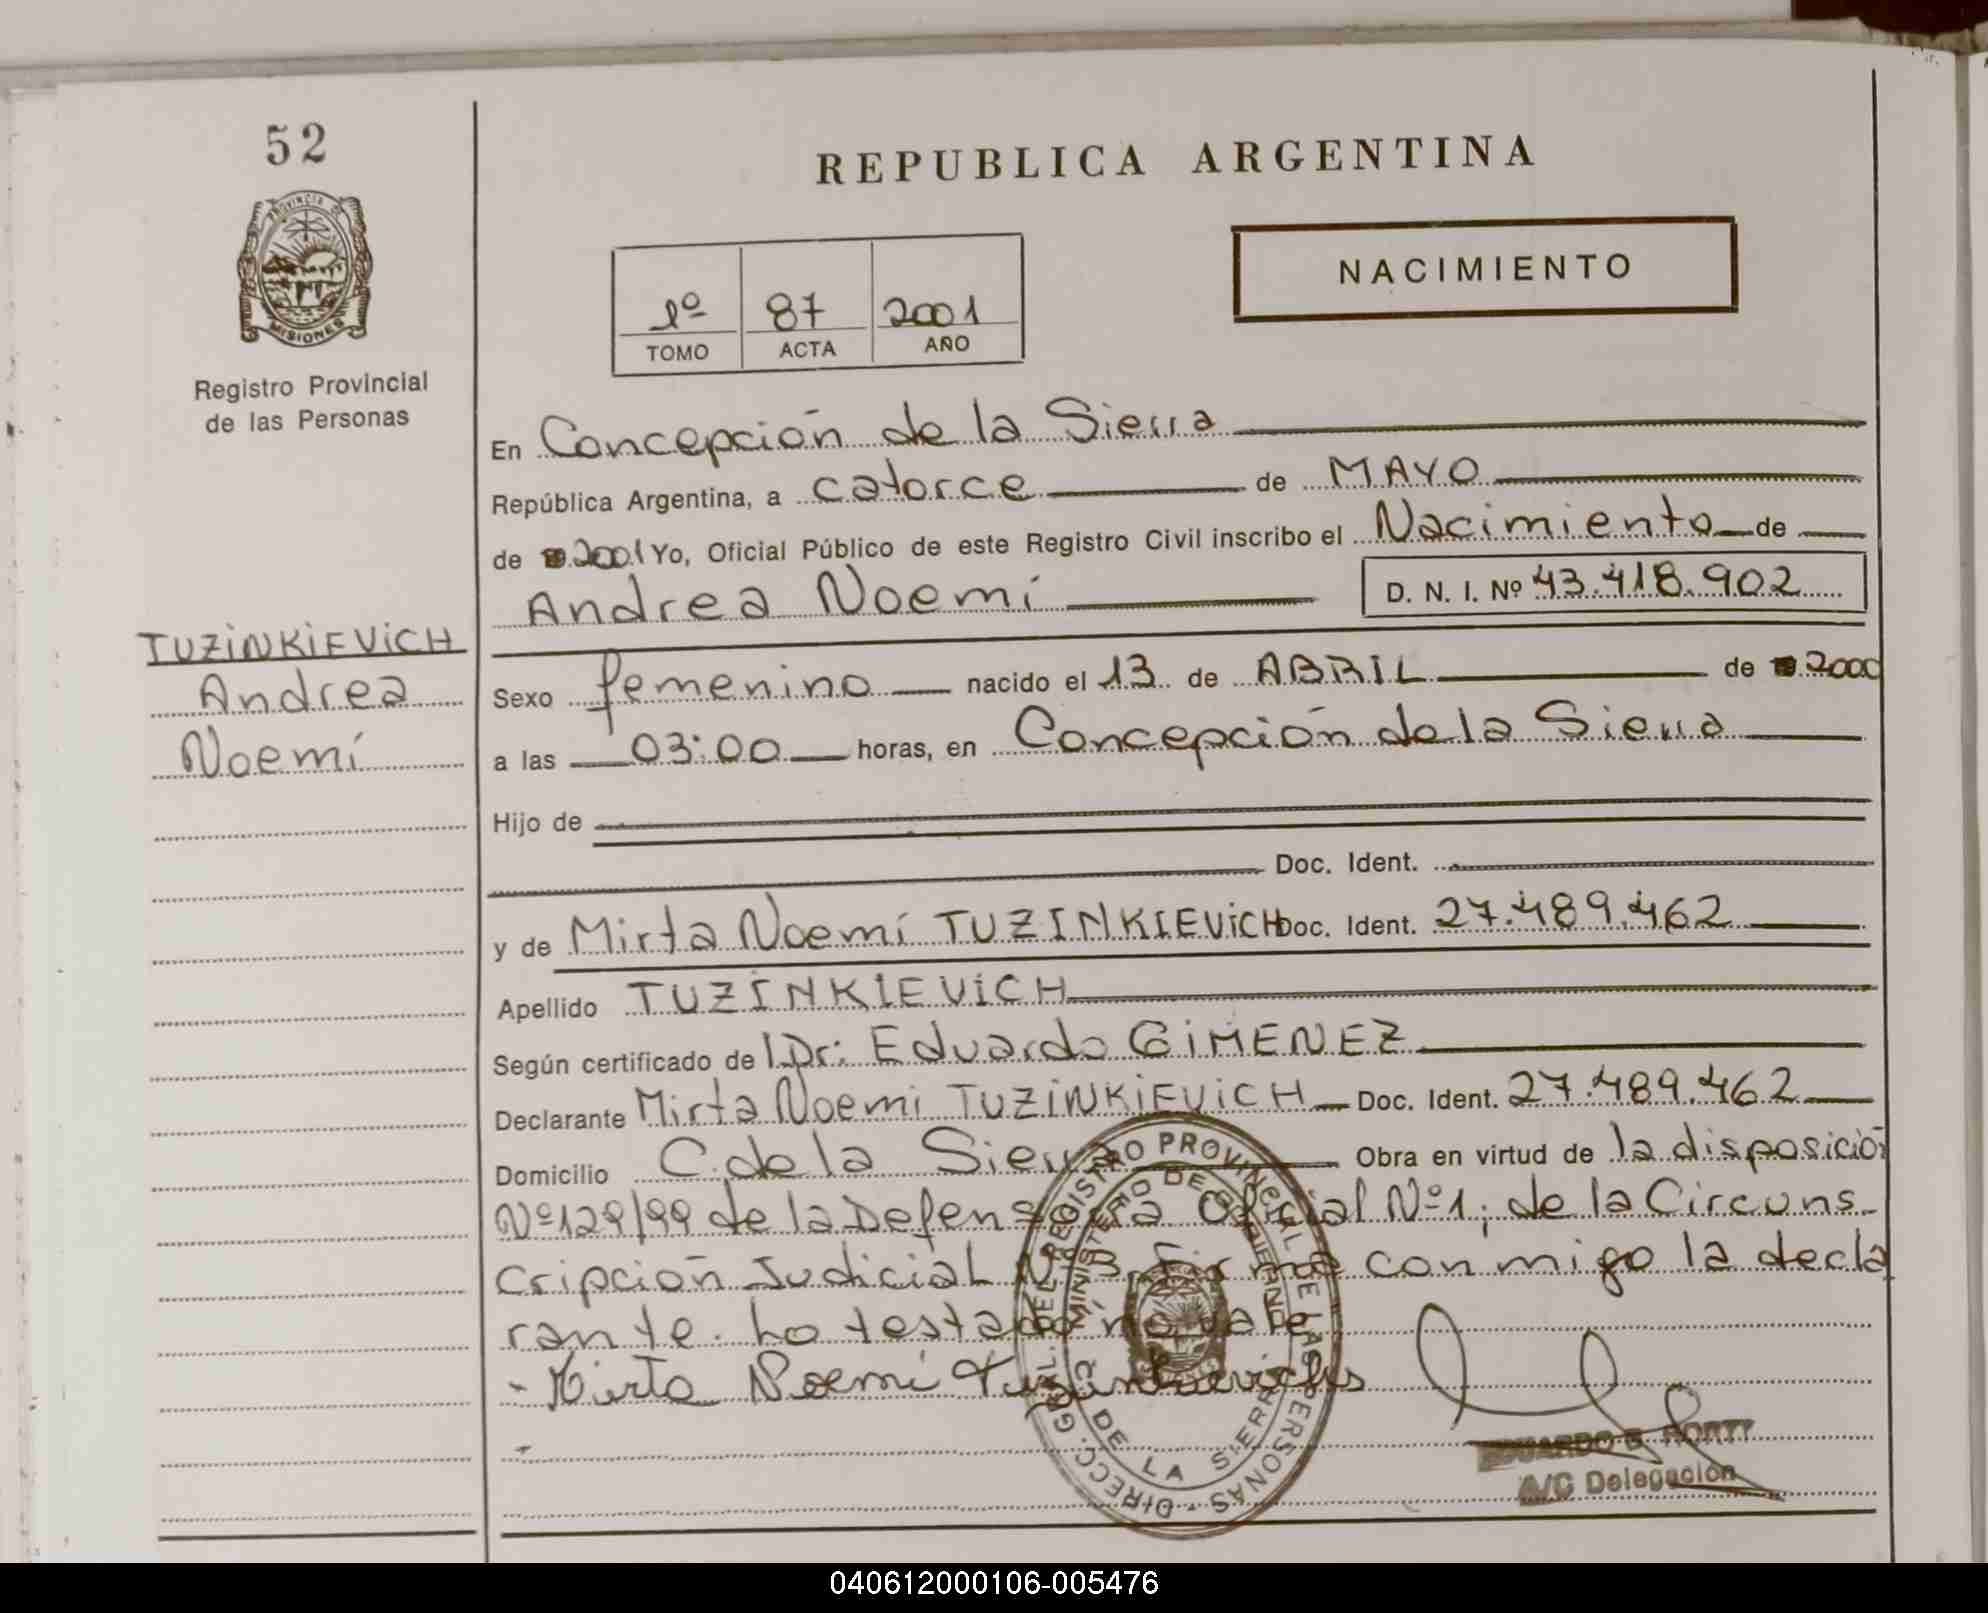 52
REPUBLICA ARGENTINA
PROVINCIA DE
MISIONES
NACIMIENTO
1º 87 2001
TOMO ACTA AÑO
Registro Provincial
de las Personas
En Concepción de la Sierra
República Argentina, a catorce de MAYO
de 2001 Yo, Oficial Público de este Registro Civil inscribo el Nacimiento de
Andrea Noemí D. N. I. Nº 43.418.902
TUZiNKiEViCH
Andrea
Noemí
Sexo femenino nacido el 13 de ABRIL de 2000
a las 03:00 horas, en Concepción de la Sierra
Hijo de
Doc. Ident.
y de Mirta Noemí TUZINKIEViCH Doc. Ident. 27.489.462
Apellido TUZINKIEViCH
Según certificado del Dr: Eduardo GiMENEZ
Declarante Mirta Noemi TUZiNKiEViCH Doc. Ident. 27.489.462
Domicilio C. de la Sierra Obra en virtud de la disposición
Nº 129/99 de la Defensoría Oficial Nº 1, de la Circuns
cripción Judicial Nº 3. Firma conmigo la decla
rante. Lo testado no vale
Mirta Noemi
DIRECC. GRAL. DEL REGISTRO PROVINCIAL DE LAS PERSONAS
MINISTERIO DE GOBIERNO
DE LA SIERRA
EDUARDO
A/C Delegación
040612000106-005476